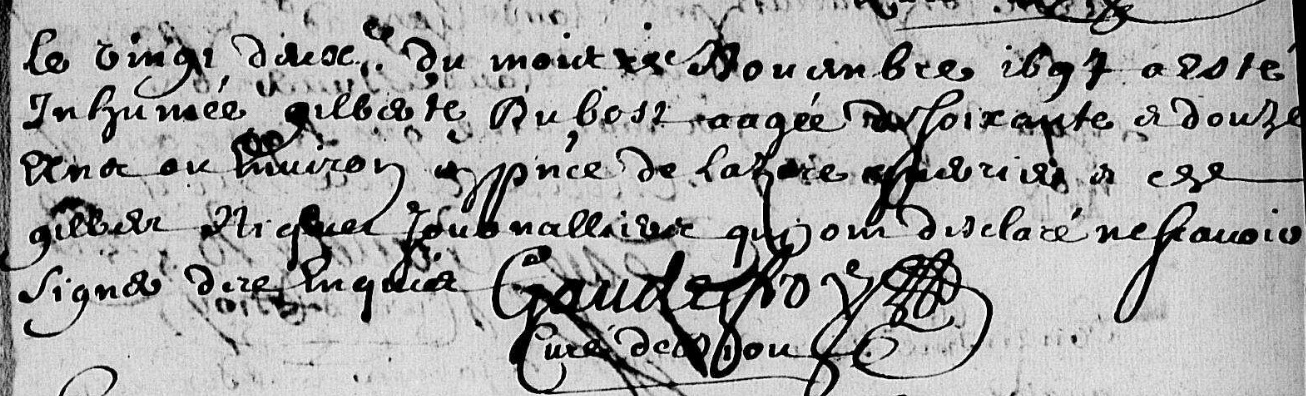 le vingt deuxe du mois de Novenbre 1697 a esté
Inhumée gilberte Dubost aagée de soixante et douze
Ans ou Environ en pnce de lazare et de
gilbert Niquet Journalliers quy ont desclaré ne scavoir
signer de ce Enquis Gaudefroy
Curé de